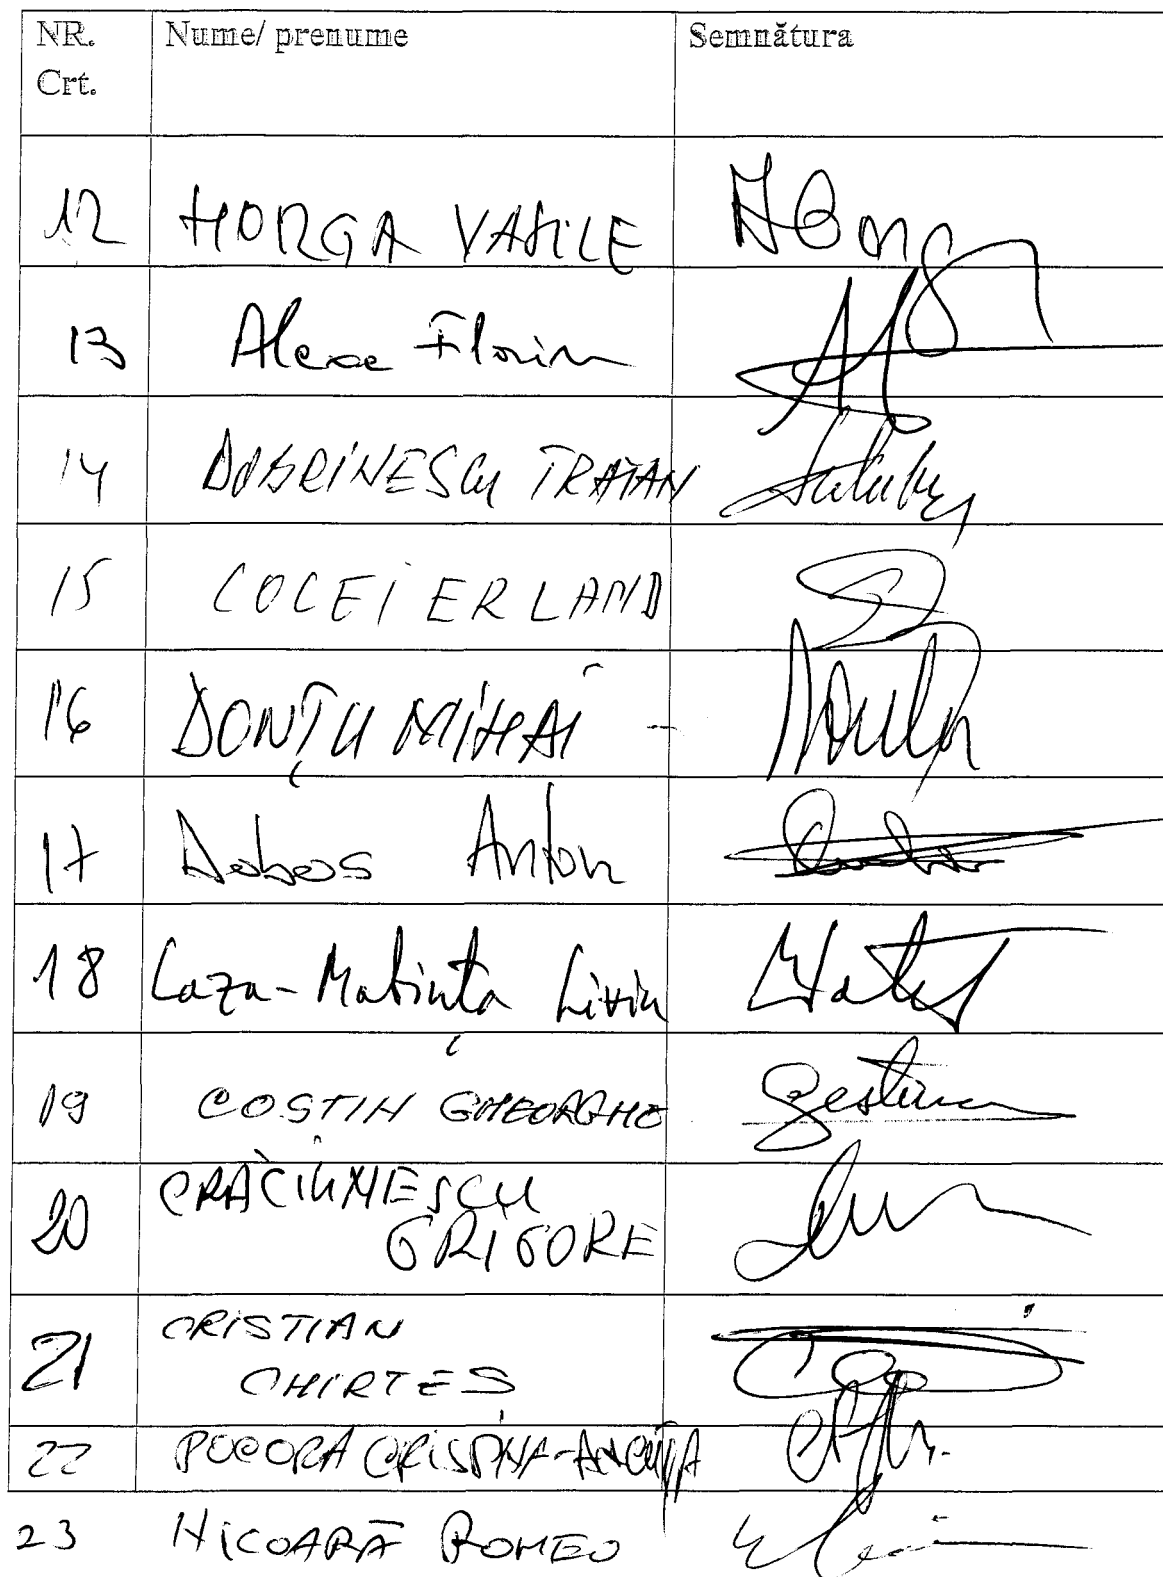 NR. Crt. Nume/ prenume Semnătura
12 HORGA VASILE
13 Alexe Florin
14 DOBRINESCU TRAIAN
15 COCEI ERLAND
16 DONȚU MIHAI -
17 Dobos Anton
18 Laza-Matiuta Liviu
19 COSTIN GHEORGHE
20 CRĂCIUNESCU
GRIGORE
21 CRISTIAN
CHIRTES
22 POCORA CRISTINA-ANCUȚA
23 NICOARĂ ROMEO